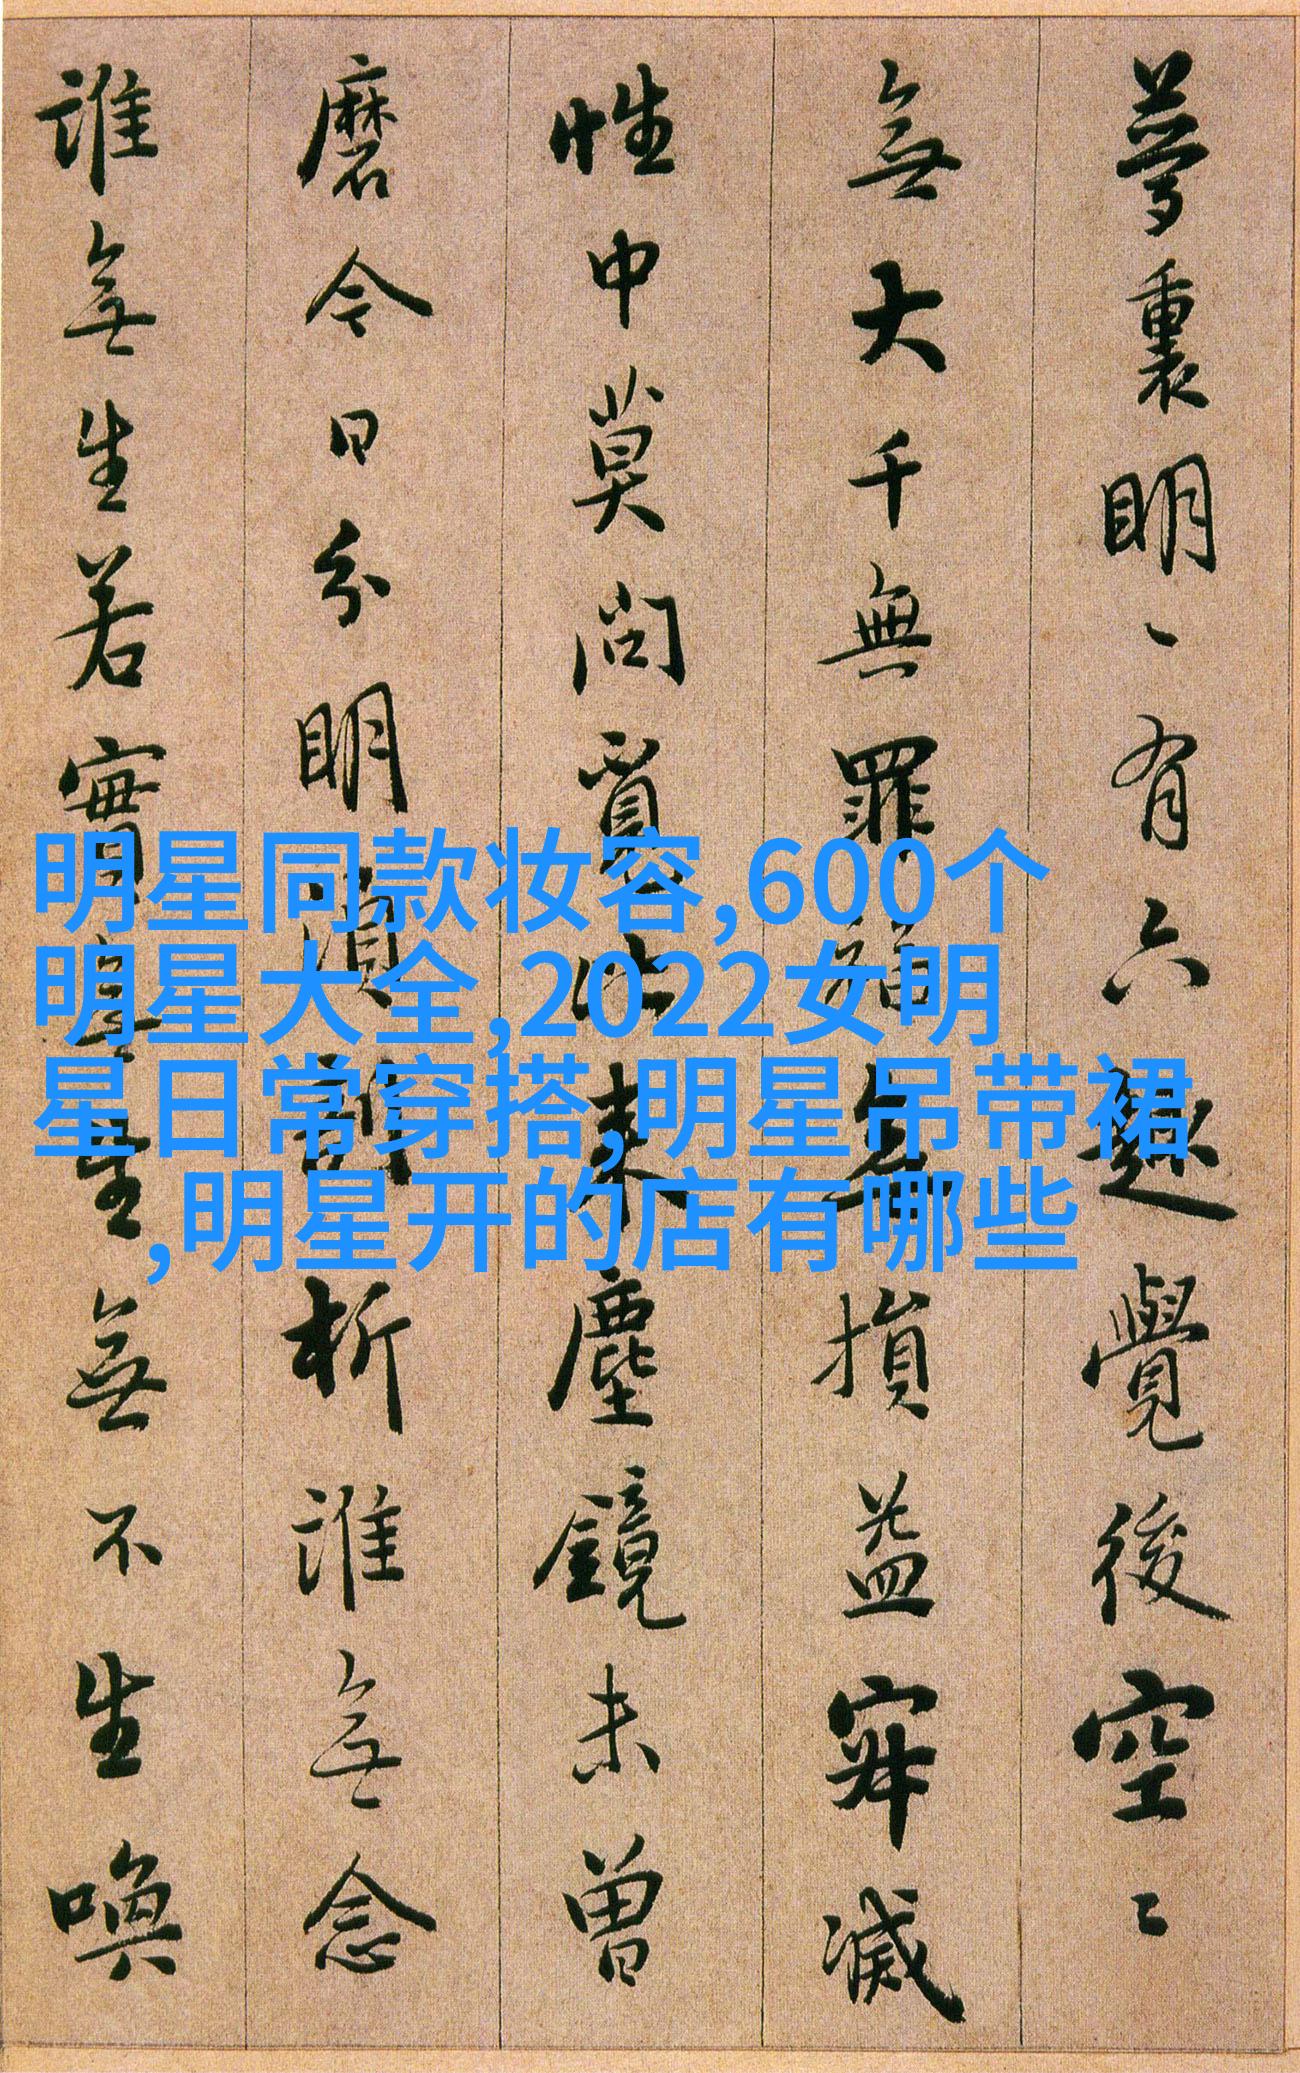 夢裏明〻有六趣覺後空〻
無大千無罪福無損益寂滅
性中莫問覓比来塵鏡未曾
磨今日分明須剖析誰無念
誰無生若實無生無不生喚
明星同款妆容,600个
明星大全,2022女明
星日常穿搭,明星吊带裙
,明星开的店有哪些